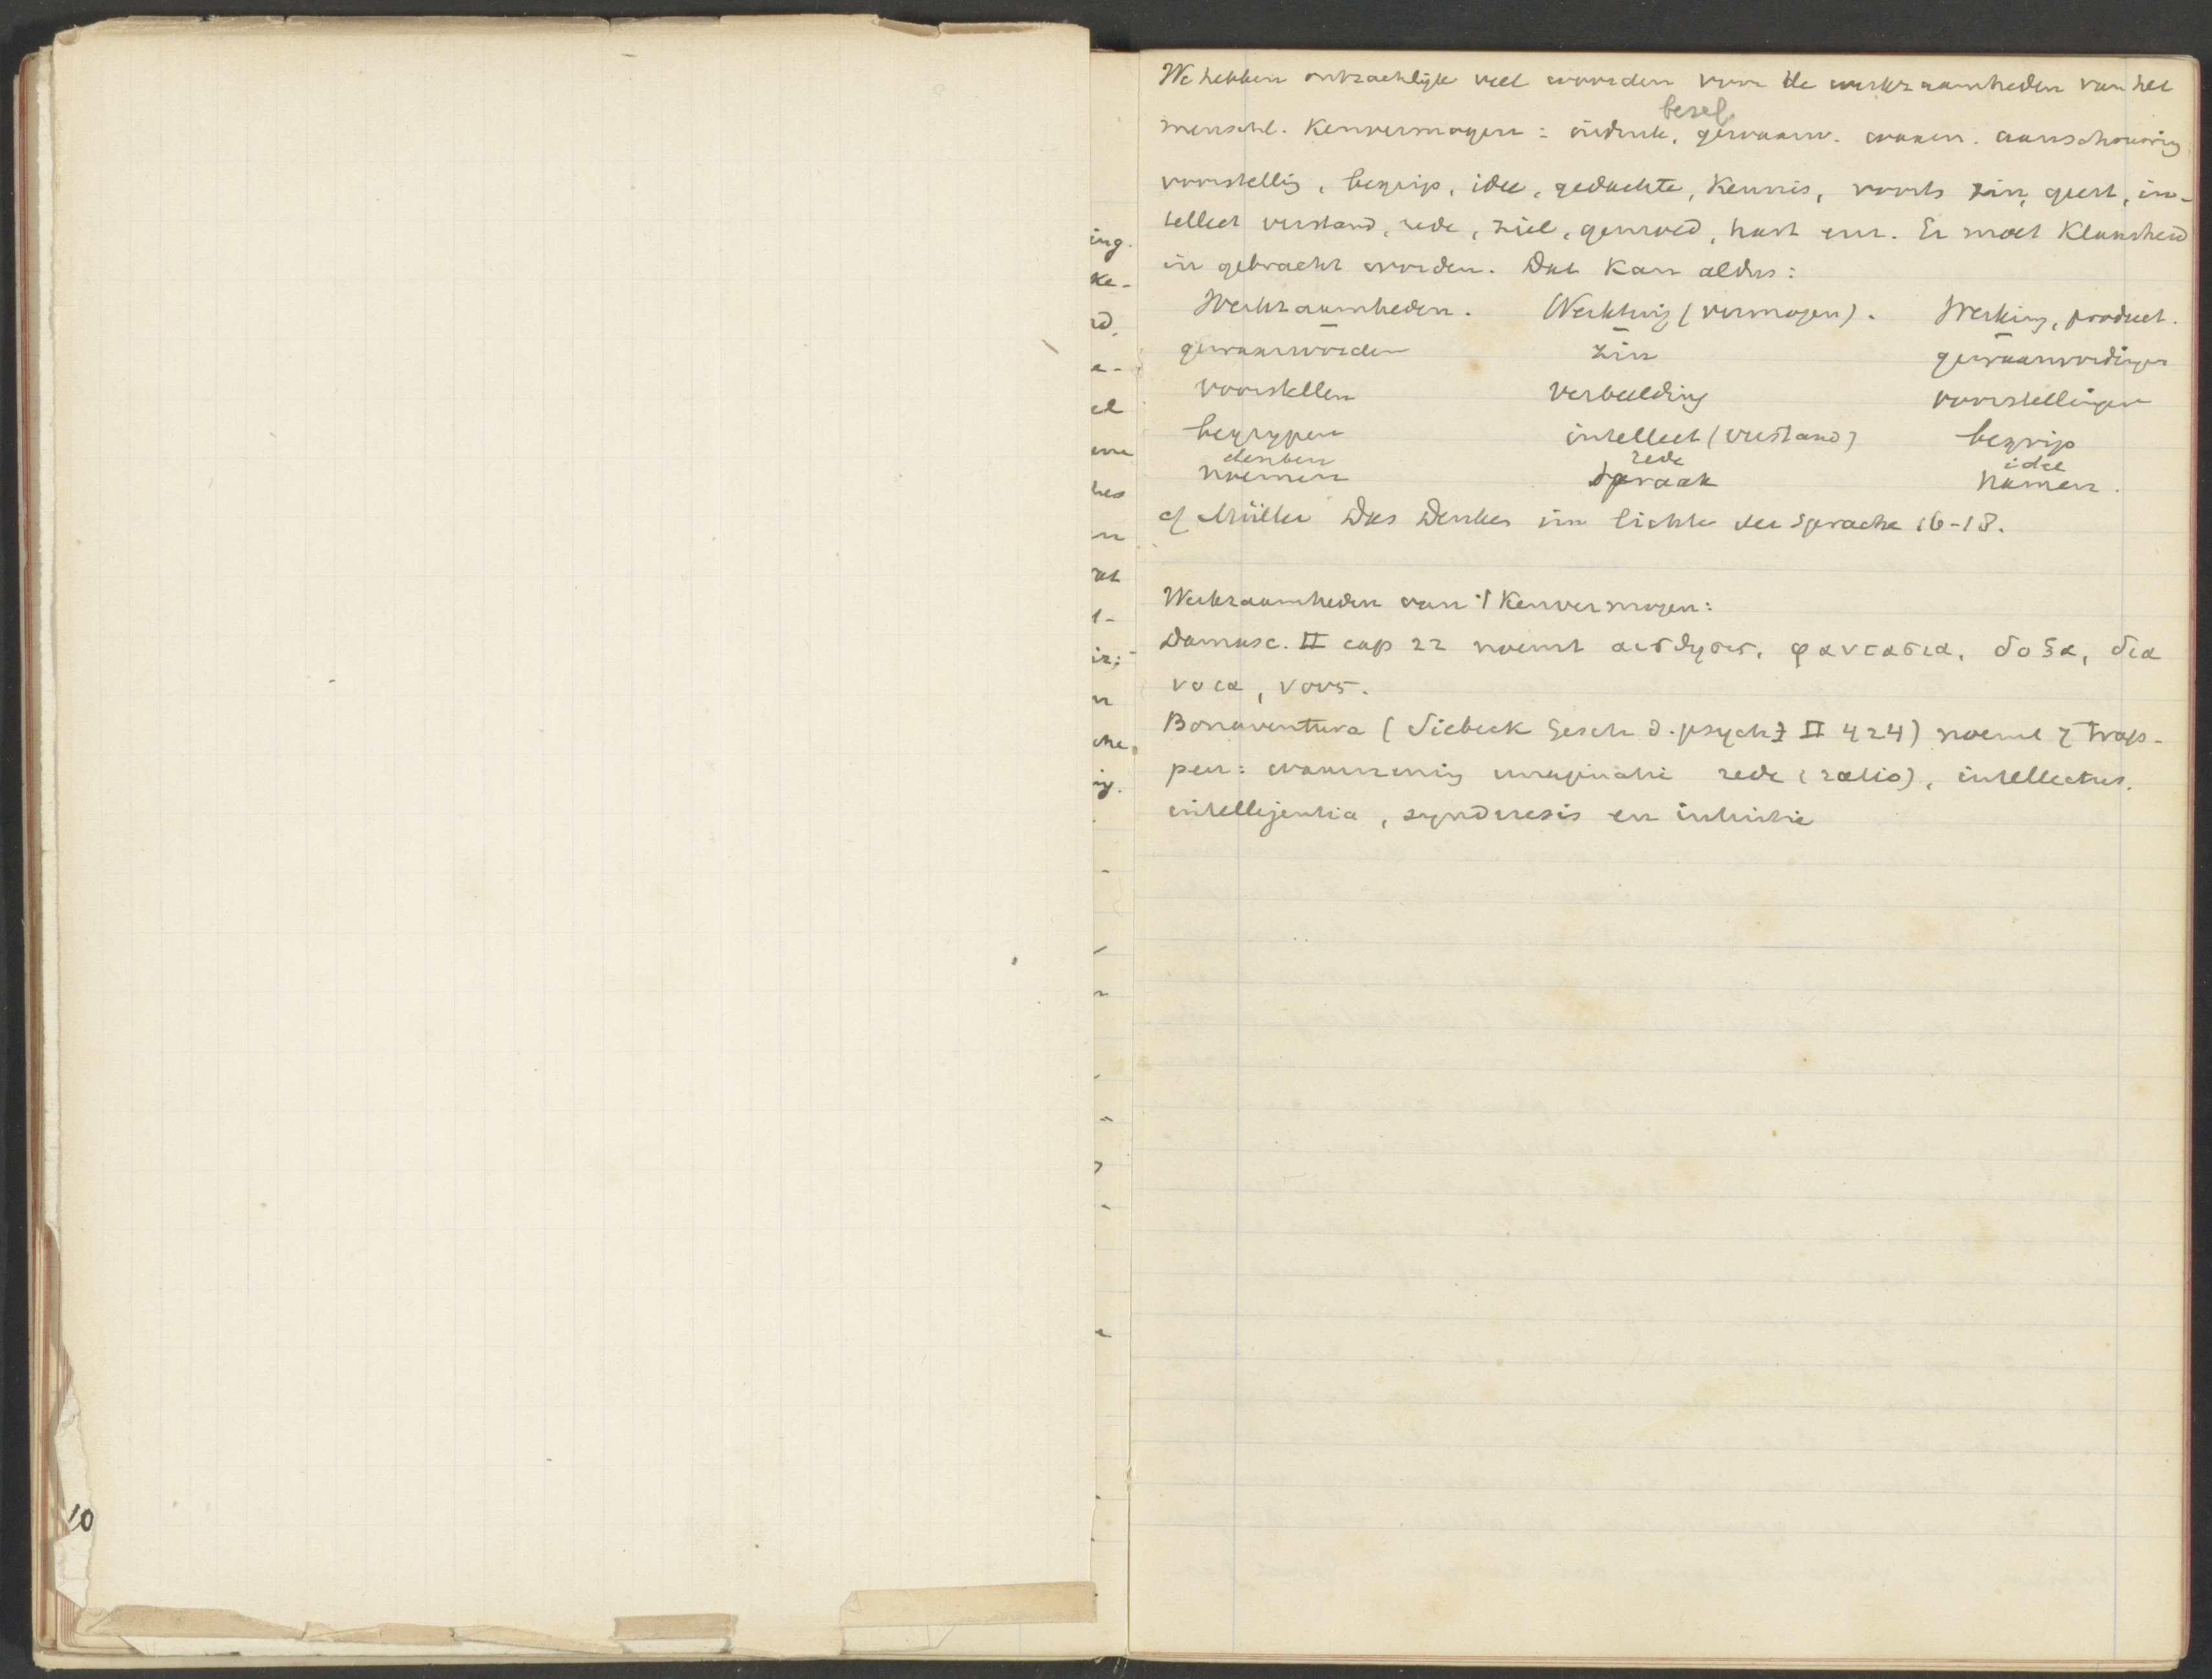 We hebben ontzachlijk veel woorden voor de werkzaamheden van het
besef
menschl. Kenvermogen: indruk, gewaarw. waarn. aanschouwing
voorstellig, begrip, idee, gedachte, Kennis, voorts zin, geest, in-
tellect verstand, rede, ziel, gemoed, hart enz. Er moet Klaarheid
in gebracht worden. Dat Kan aldus:
Werkzaamheden. Werktuig (vermogen). Werking, product.
gewaarworden zin gewaarwordingen
voorstellen verbeelding voorstellingen
begrypen intellect (verstand) begrip
denken rede idee
noemen spraak namen.
cf Müller Das Denken im Lichte der Sprache 16-18.
Werkzaamheden van 't Kenvermogen:
Damasc. II cap 22 noemt αισθησις, φαντασια, δοξα, δια
νοια, νους.
Bonaventura (Siebeck Gesch d. psych I II 424) noemt 7 trap-
pen: waarneming imaginatie rede (ratio), intellectus.
intellegentia, synderesis en intuitie
ing.
ke-
rd.
e-
el
hes
n
rat
t-
iz;
n
che
ig.
10